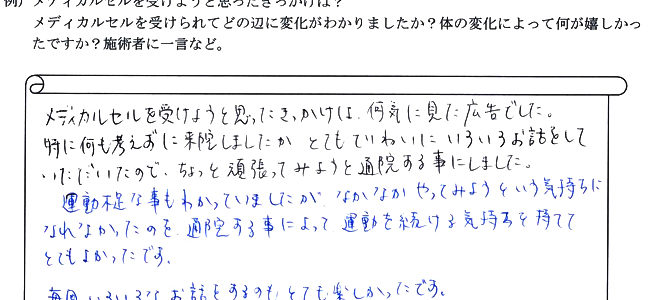 例）メディカルセルを受けようと思ったきっかけは？
メディカルセルを受けられてどの辺に変化がわかりましたか？体の変化によって何が嬉しかっ
たですか？施術者に一言など。
メディカルセルを受けようと思ったきっかけは、何気に見た広告でした。
特に何も考えずに来院しましたが とてもていねいに いろいろお話をして
いただいたので、ちょっと頑張ってみようと通院する事にしました。
運動不足な事もわかっていましたが、なかなかやってみようという気持ちに
なれなかったのを、通院する事によって 運動を続ける気持ちを持てて
とてもよかったです。
毎回いろいろなお話をするのもとても楽しかったです。